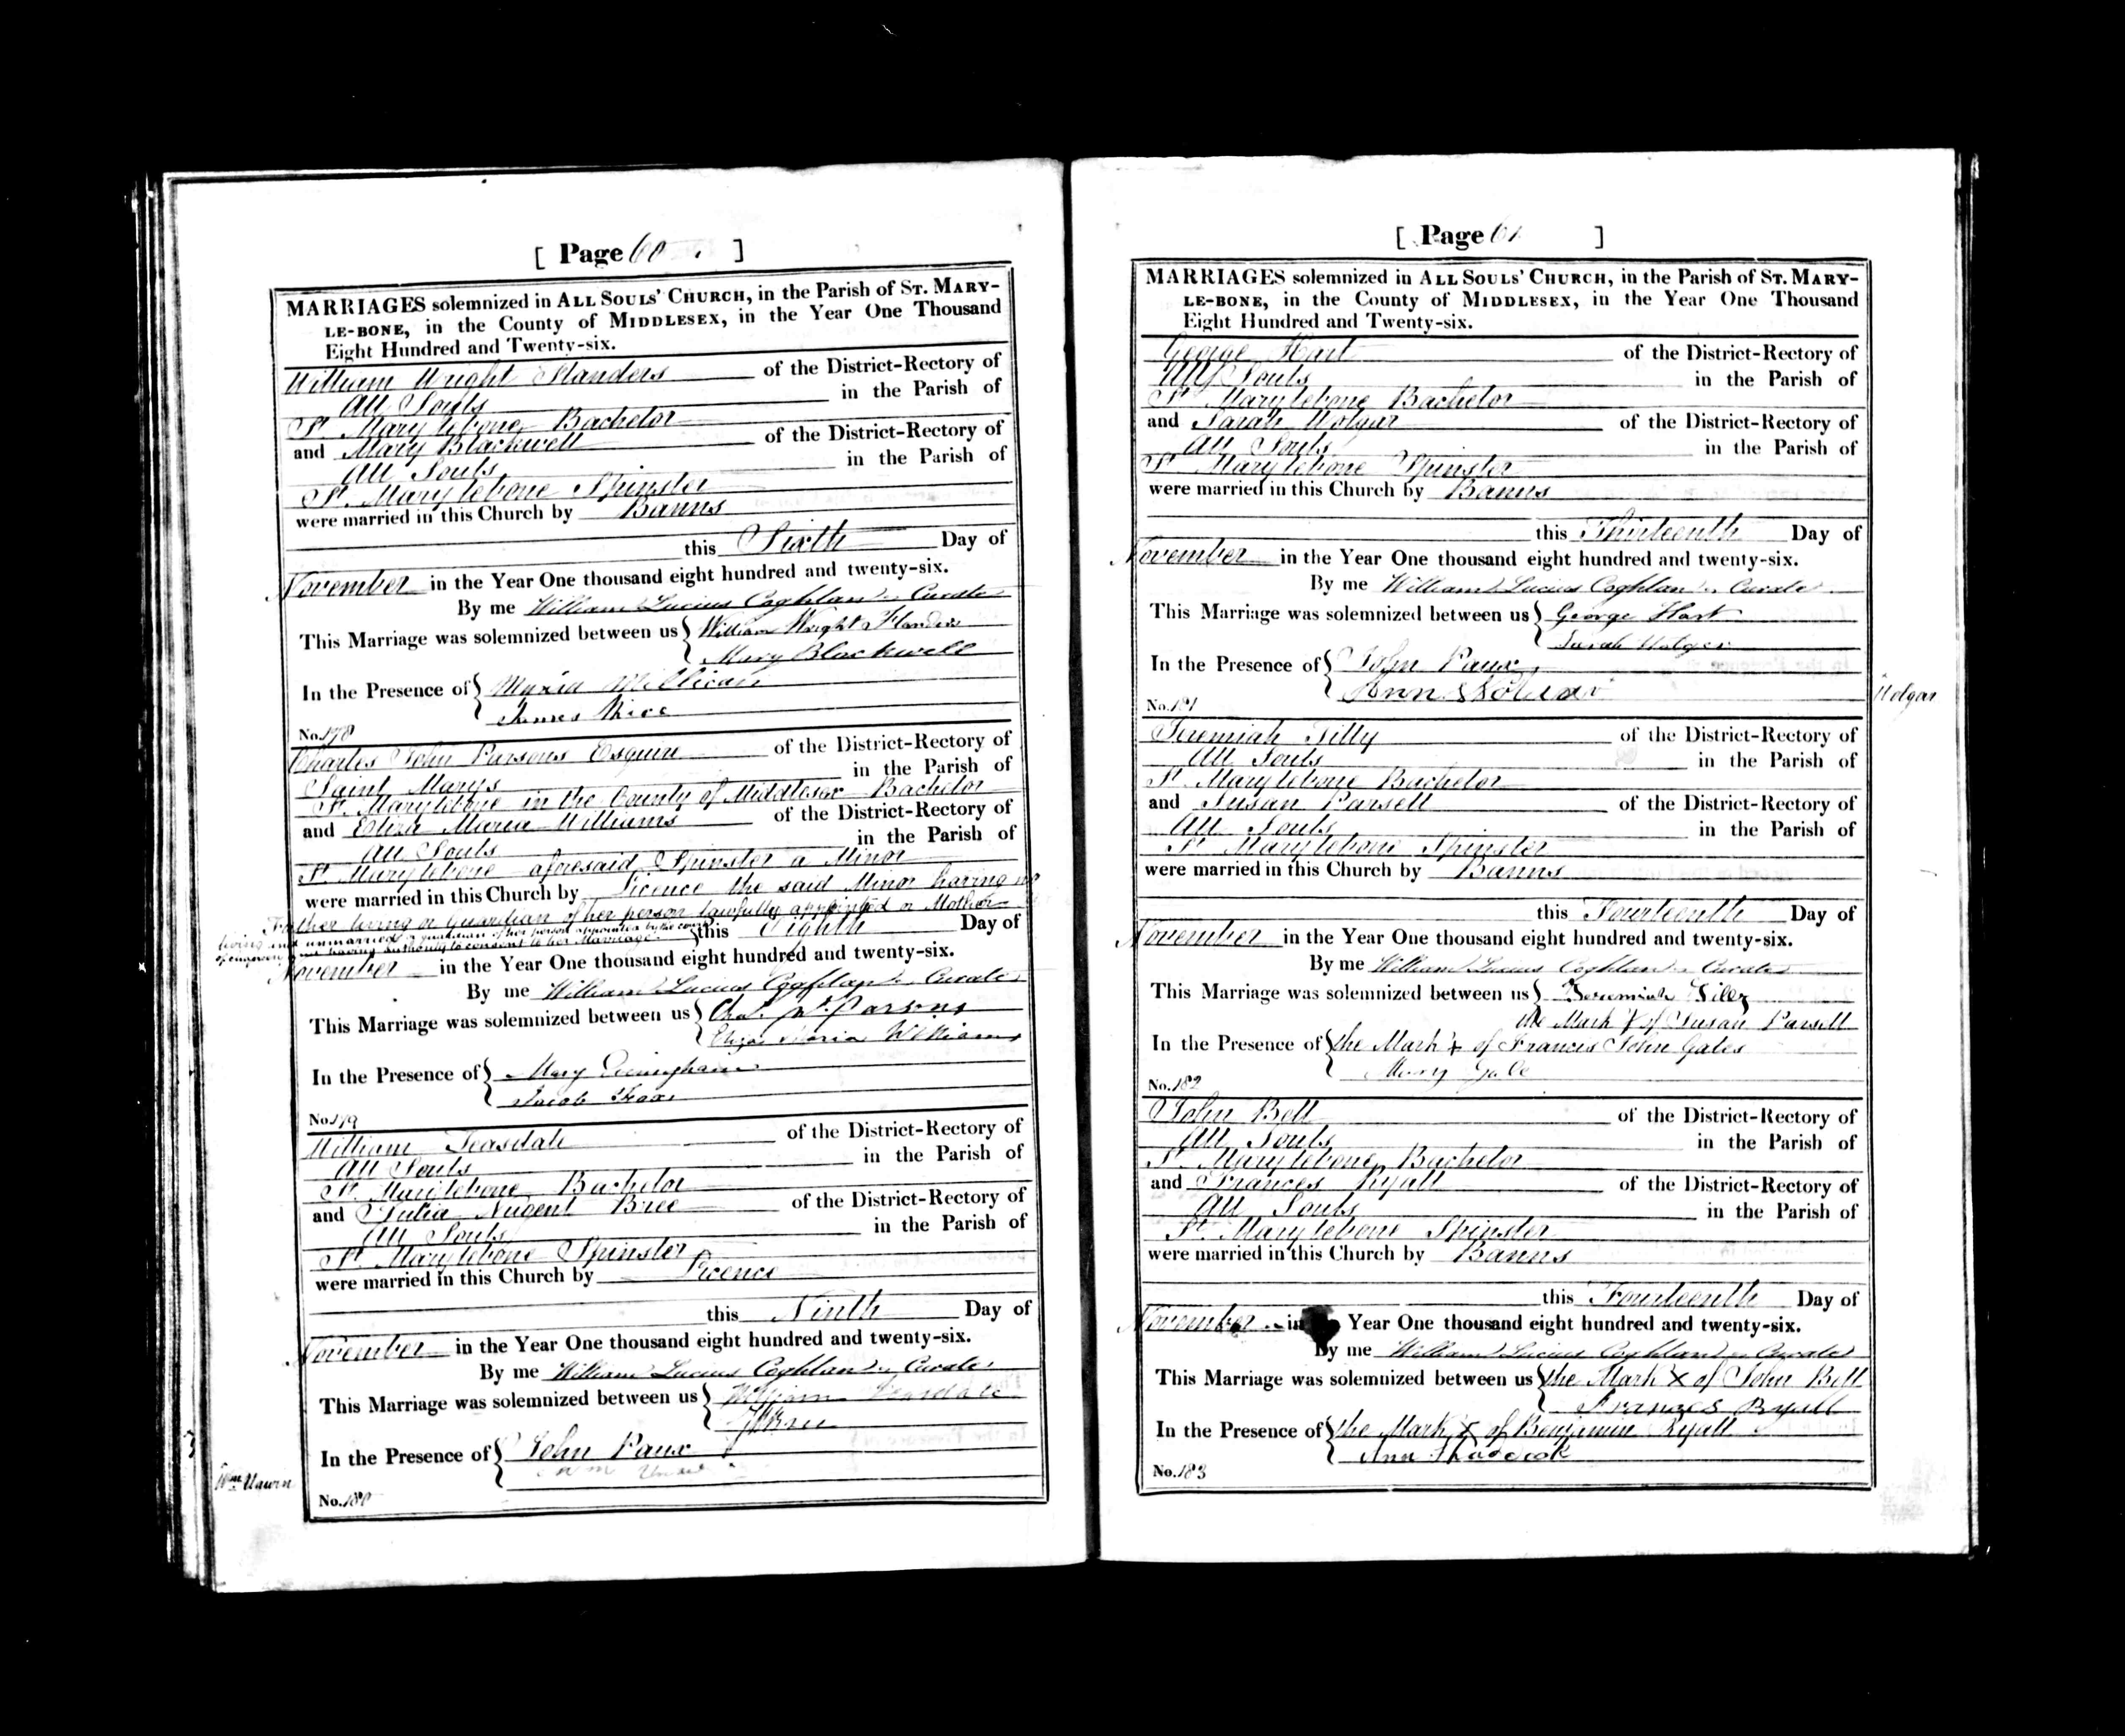 [ Page 60 ]
MARRIAGES solemnized in ALL SOULS' CHURCH, in the Parish of ST. MARY-
LE-BONE, in the County of MIDDLESEX, in the Year One Thousand
Eight Hundred and Twenty-six.
William Wright Flanders of the District-Rectory of
All Souls in the Parish of
St. Marylebone Bachelor
and Mary Blackwell of the District-Rectory of
All Souls in the Parish of
St. Marylebone Spinster
were married in this Church by Banns
this Sixth Day of
November in the Year One thousand eight hundred and twenty-six.
By me William Lucius Coghlan Curate
This Marriage was solemnized between us William Wright Flanders
Mary Blackwell
In the Presence of Maria Millican
James
No. 178
Charles John Parsons Esquire of the District-Rectory of
Saint Marys in the Parish of
St. Marylebone in the County of Middlesex Bachelor
and Eliza Maria Williams of the District-Rectory of
All Souls in the Parish of
St. Marylebone aforesaid Spinster a Minor
were married in this Church by Licence the said Minor having no
Father living or Guardian of her person lawfully appointed or Mother
living and unmarried or guardian of her person appointed by the court
of chancery and having authority to consent to her Marriage. this Eighth Day of
November in the Year One thousand eight hundred and twenty-six.
By me William Lucius Coghlan Curate
This Marriage was solemnized between us Chas. Jn. Parsons
Eliza Maria Williams
In the Presence of Mary
Jacob
No. 179
William Teasdale of the District-Rectory of
All Souls in the Parish of
St. Marylebone Bachelor
and Julia Nugent Bree of the District-Rectory of
All Souls in the Parish of
St. Marylebone Spinster
were married in this Church by Licence
this Ninth Day of
November in the Year One thousand eight hundred and twenty-six.
By me William Lucius Coghlan Curate
This Marriage was solemnized between us William Teasdale
Bree
In the Presence of John Paux
Wm
No. 180
[ Page 61 ]
MARRIAGES solemnized in ALL SOULS' CHURCH, in the Parish of ST. MARY-
LE-BONE, in the County of MIDDLESEX, in the Year One Thousand
Eight Hundred and Twenty-six.
George Hart of the District-Rectory of
All Souls in the Parish of
St. Marylebone Bachelor
and Sarah Holgar of the District-Rectory of
All Souls in the Parish of
St. Marylebone Spinster
were married in this Church by Banns
this Thirteenth Day of
November in the Year One thousand eight hundred and twenty-six.
By me William Lucius Coghlan Curate
This Marriage was solemnized between us George Hart
Sarah Holger
In the Presence of John Paux
Ann
Holgar
No. 181
Jeremiah Tilly of the District-Rectory of
All Souls in the Parish of
St. Marylebone Bachelor
and Susan Parsell of the District-Rectory of
All Souls in the Parish of
St. Marylebone Spinster
were married in this Church by Banns
this Fourteenth Day of
November in the Year One thousand eight hundred and twenty-six.
By me William Lucius Coghlan Curate
This Marriage was solemnized between us Jeremiah Tiley
the Mark X of Susan Parsell
In the Presence of the Mark + of Francis John Gales
Mary Gale
No. 182
John Bell of the District-Rectory of
All Souls in the Parish of
St. Marylebone Bachelor
and Frances Ryall of the District-Rectory of
All Souls in the Parish of
St. Marylebone Spinster
were married in this Church by Banns
this Fourteenth Day of
November in Year One thousand eight hundred and twenty-six.
By me William Lucius Coghlan Curate
This Marriage was solemnized between us the Mark X of John Bell
Frances Ryall
In the Presence of the Mark X of Benjamin Ryall
Ann
No. 183